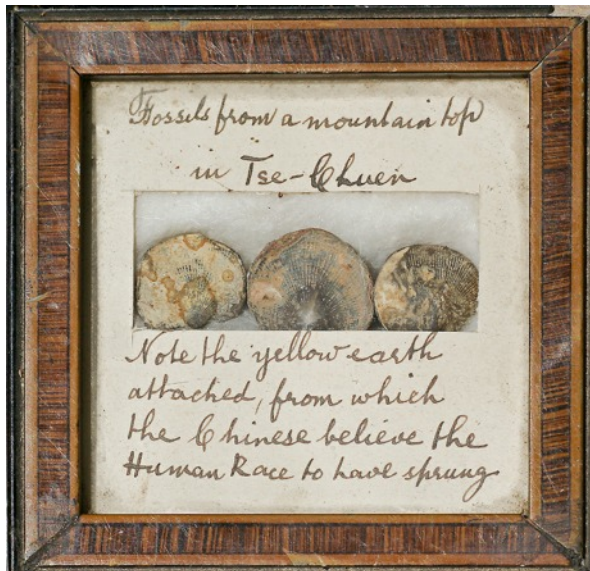 Fossils from a mountain top
in Tse-Chuen
Note the yellow earth
attached, from which
the Chinese believe the
Human Race to have sprung